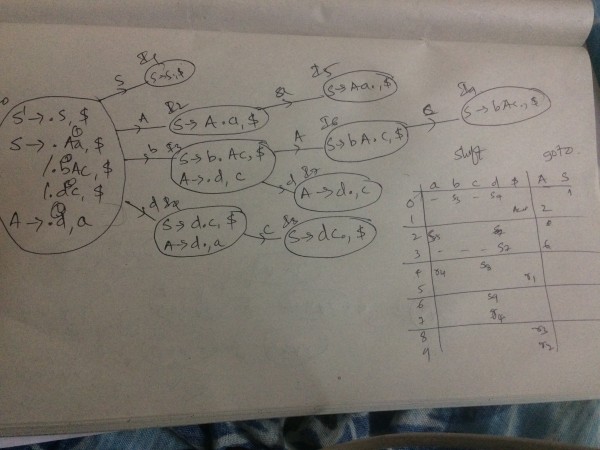 I1
S → S., $
S
S' → .S, $
S → .Aa, $
/.bAc, $
/.dc, $
A → .d, a
A
I2
S → A.a, $
a
I5
S → Aa., $
b
I3
S → b.Ac, $
A → .d, c
A
I6
S → bA.c, $
I9
S → bAc., $
d
I7
A → d., c
d
S → d.c, $
A → d., a
c
S → dc., $
shift
goto
a b c d $ A S
0 - S3 - S4 1
1 2
2 S5
3 - - - S7 6
4 r4 S8
5 r1
6 S9
7 r4
8 r3
9 r2